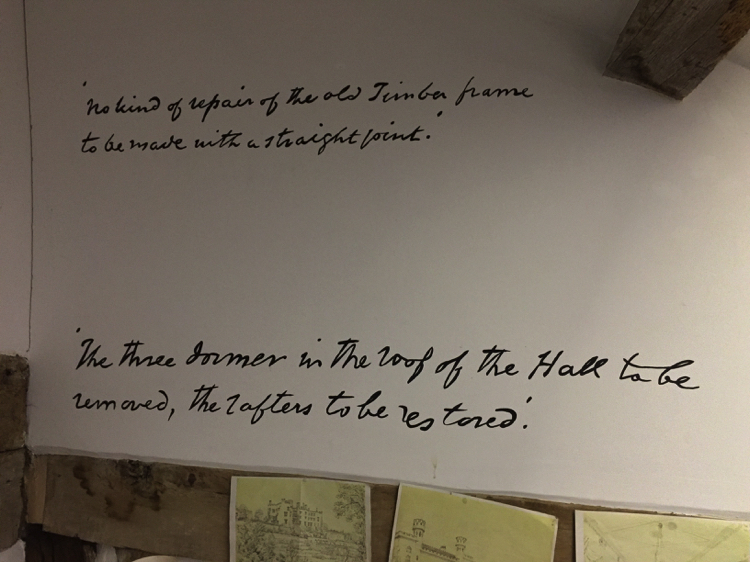 'No kind of repair of the old Timber frame
to be made with a straight joint.'
'The three dormer in the roof of the Hall to be
removed, the rafters to be restored'.